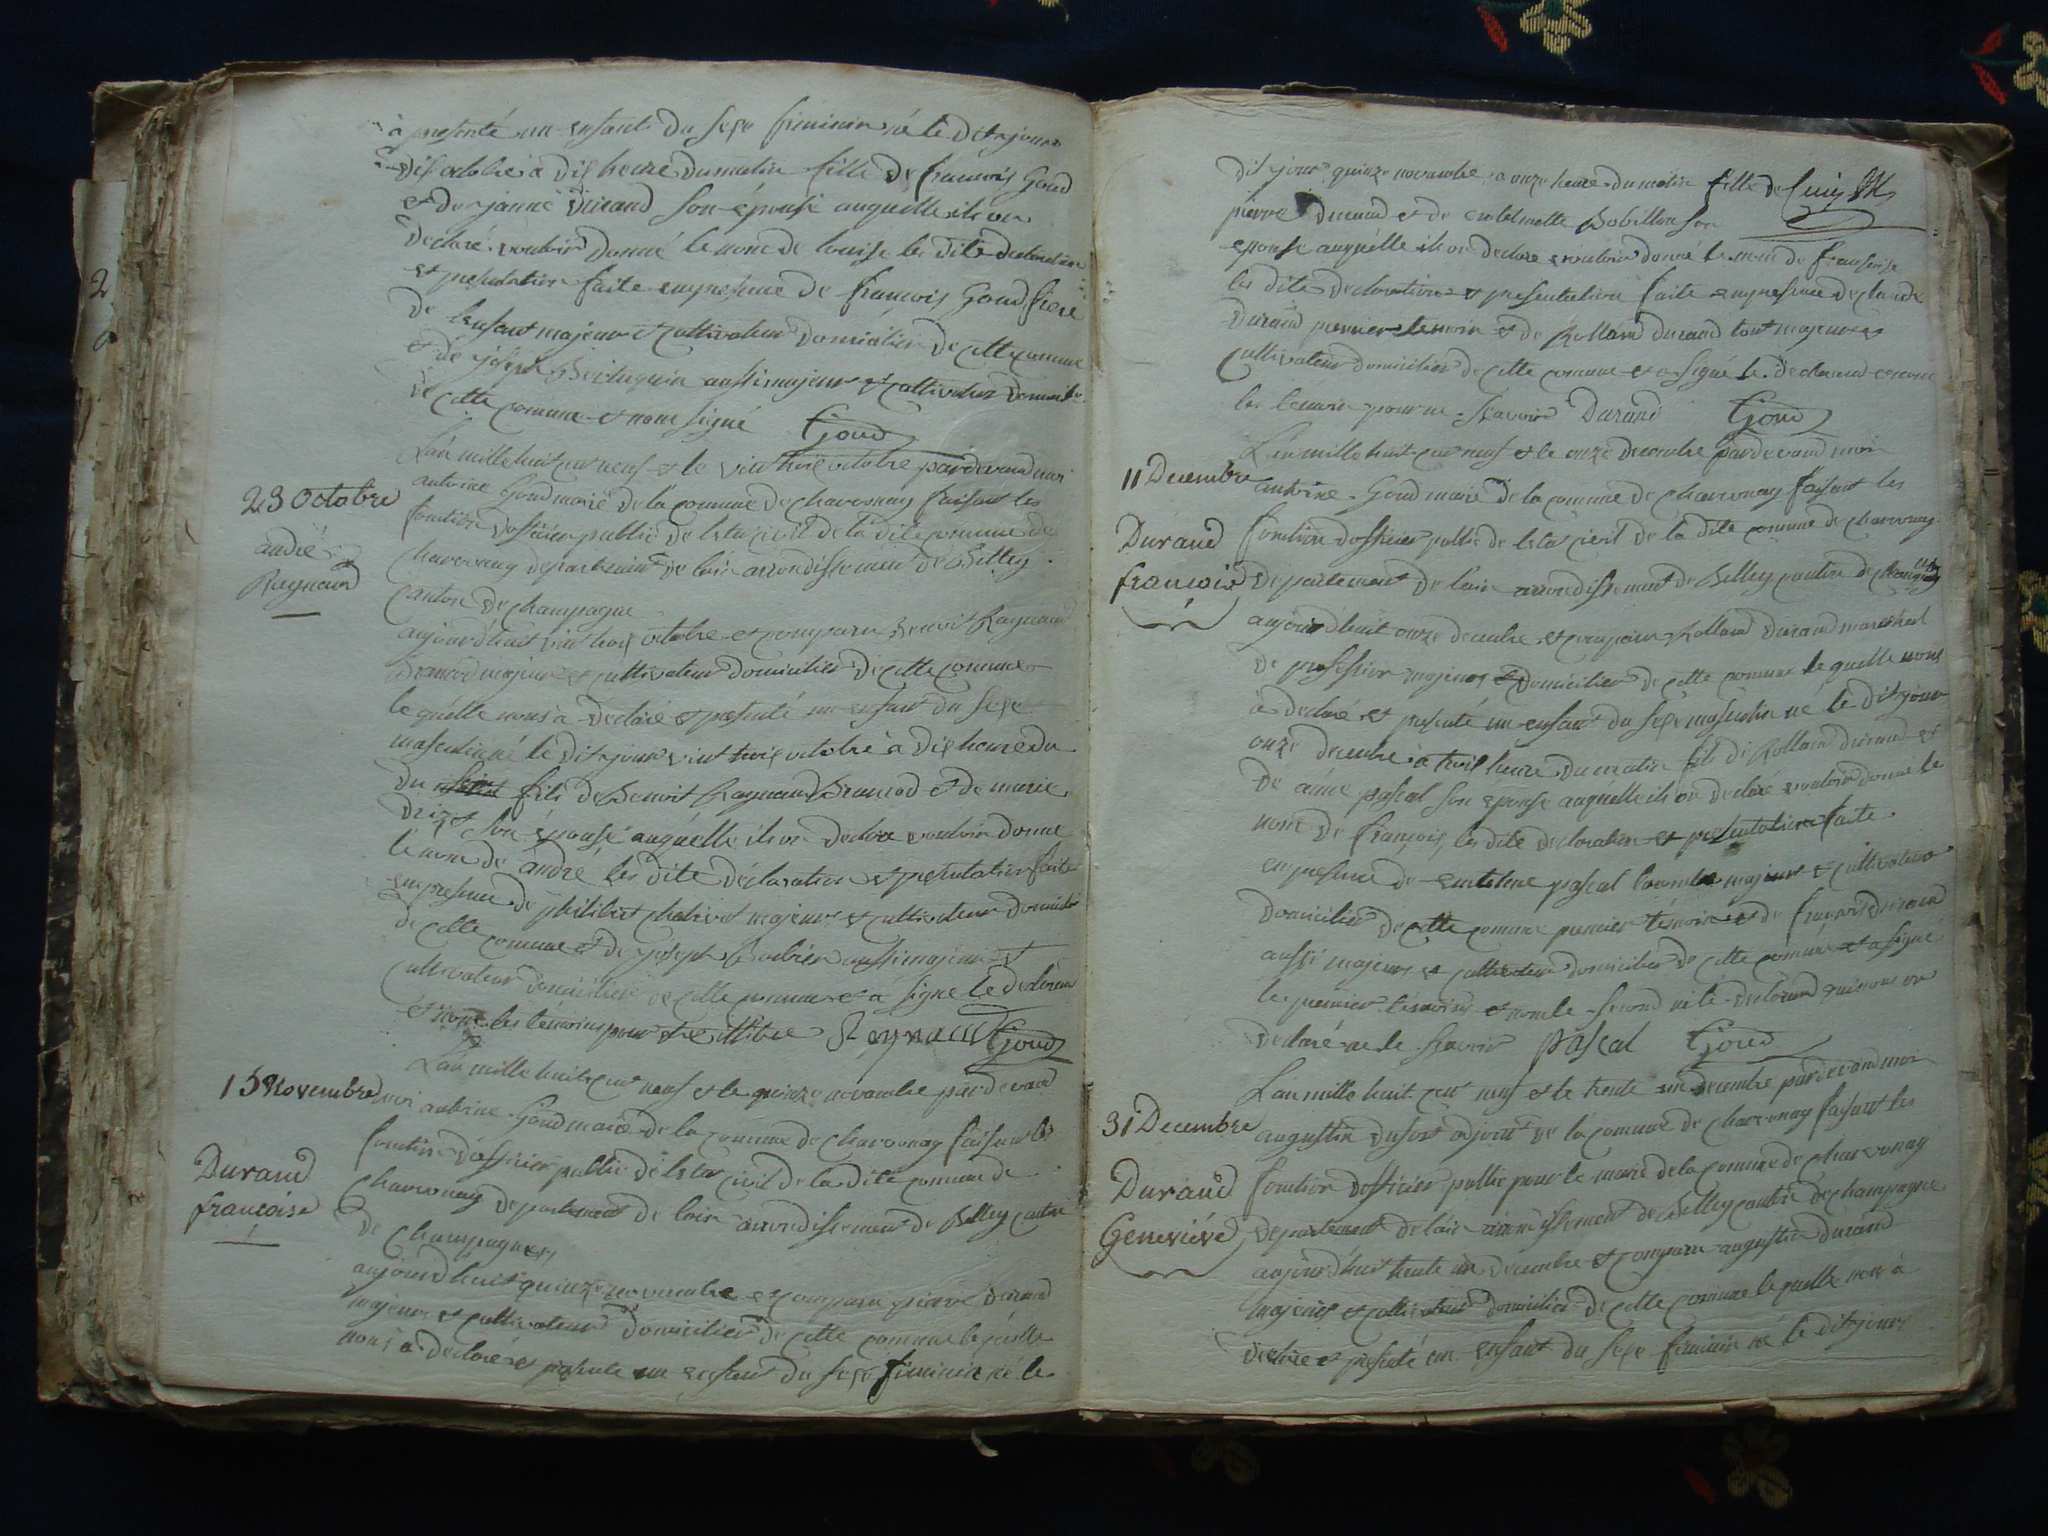 à presenté un enfant du sexe feminin né le dit jour
dix octobre à dix heure du matin fille de francois Goud
et de janne Durand son épouse auquelle ils on
declaré vouloir donné le nom de louise les dite declaration
et presentation faite en presence de francois Goud frere
de l'enfant majeur et cultivateur domicilier de cette comune
et de joseph aussi majeur et cultivateur domicilier
de cette comune et nom signé Goud
L'an mille huit cent neuf et le vint trois octobre pardevand moi
23 Octobre
antoine Goud maire de la comune de charvonay faisant les
fonction d'officier public de l'etat civil de la dite comune de
andré
Raynaud
charvonay departement de lain arrondissement de Belley
canton de champagne
aujourd'huit vint trois octobre et comparu Benoit Raynaud
majeur et cultivateur domicilier de cette comune
le quelle nous a declaré et presenté un enfant du sexe
masculin né le dit jour vint trois octobre à dix heure du
du fils de Benoit Raynaud et de marie
son épouse auquelle ils on declare vouloir donne
le nom de andré les dite déclaration et presentation faite
en presence de philibert majeur et cultivateur domicilier
de cette comune et de joseph aussi majeur et
cultivateur domicilier de cette comune et à signe le declarant
et nom les temoins pour Reynaud Goud
L'an mille huit cent neuf et le quinze novembre pardevand
15 Novembre
moi antoine Goud maire de la comune de charvonay faisant les
fonction d'officier public de l'etat civil de la dite comune de
Durand
francoise
charvonay departement de lain arrondissement de Belley canton
de champagne
aujourd'huit quinze novembre et comparu pierre Durand
majeur et cultivateur domicilier de cette comune le quelle
nous à declaré et presente un enfant du sexe feminin né le
dit jour quinze novembre a onze heure du matin fille de
pierre Durand et de Bobillon son
epouse auquelle ils on declare vouloir donné le nom de francoise
les dite declaration et presentation faite en presence de claude
Durand premier temoin et de Rolland durand tout majeur et
cultivateur domicilier de cette comune et a signé le declarand
les temoin pour ne scavoir Durand Goud
L'an mille huit cent neuf et le onze decembre pardevand moi
11 Decembre
antoine Goud maire de la comune de charvonay faisant les
Durand
francois
fonction dofficier public de letat civil de la dite comune de charvonay
departement de lain arrondissement de Belley canton de
aujourd'huit onze decembre et comparu Rolland Durand marechal
de profession majeur et domicilier de cette comune le quelle nous
à declaré et presenté un enfant du sexe masculin né le dit jour
onze decembre à trois heure du matin fils de Rolland durand et
de aimé pascal son épouse auquelle ils on declaré vouloir donne le
nom de francois les dite declaration et presentation faite
en presence de pascal majeur et cultivateur
domicilier de cette comune premier témoin et de francois durand
aussi majeur et cultivateur domicilier de cette comune et a signé
le premier temoins et nom le second ni le declarand qui nous on
declaré ne le scavoir pascal Goud
L'an mille huit cent neuf et le trente un decembre pardevand moi
31 Decembre
augustin adjoint de la comune de charvonay faisant les
Durand
Geneviéve
fonction dofficier public pour le maire de la comune de charvonay
departement de lain arrondissement de Belley canton de champagne
aujourd'huit trente un decembre et comparu augustin durand
majeur et cultivateur domicilier de cette comune le quelle nous à
declaré et presenté un enfant du sexe feminin né le dit jour